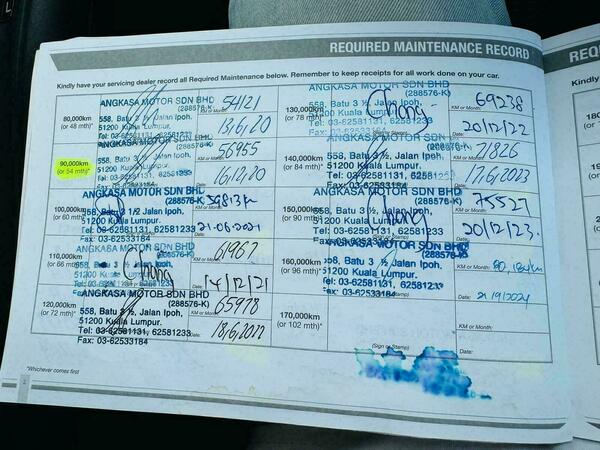 REQUIRED MAINTENANCE RECORD
REQU
Kindly have your servicing dealer record all Required Maintenance below. Remember to keep receipts for all work done on your car.
Kindly
80,000km
(or 48 mth)*
ANGKASA MOTOR SDN BHD
(288576-K)
558, Batu 3 ½, Jalan Ipoh,
51200 Kuala Lumpur.
Tel: 03-62581131, 62581233
Fax: 03-62533184
54121
Date:
18/6/20
90,000km
(or 54 mth)*
ANGKASA MOTOR SDN BHD
(288576-K)
558, Batu 3 ½, Jalan Ipoh,
51200 Kuala Lumpur.
Tel: 03-62581131, 62581233
Fax: 03-62533184
56955
Date:
16/12/20
100,000km
(or 60 mth)
ANGKASA MOTOR SDN BHD
(288576-K)
558, Batu 3 ½ Jalan Ipoh,
51200 Kuala Lumpur.
Tel: 03-62581131, 62581233
Fax: 03-62533184
KM or Month:
21.06.2021
110,000km
(or 66 mth)*
ANGKASA MOTOR SDN BHD
(288576-K)
558, Batu 3 ½, Jalan Ipoh,
51200 Kuala Lumpur.
61967
KM or Month:
Date:
14/12/21
120,000km
(or 72 mth)
ANGKASA MOTOR SDN BHD
(288576-K)
558, Batu 3 ½, Jalan Ipoh,
51200 Kuala Lumpur.
Tel: 03-62581131, 62581233
Fax: 03-62533184
65978
KM or Month:
Date:
18/6/2022
130,000km
(or 78 mth)*
ANGKASA MOTOR SDN BHD
(288576-K)
558, Batu 3 ½, Jalan Ipoh,
51200 Kuala Lumpur.
Tel: 03-62581131, 62581233
Fax: 03-62533184
69238
KM or Month:
Date:
20/12/22
140,000km
(or 84 mth)*
ANGKASA MOTOR SDN BHD
(288576-K)
558, Batu 3 ½, Jalan Ipoh,
51200 Kuala Lumpur.
Tel: 03-62581131, 62581233
Fax: 03-62533184
71826
KM or Month:
Date:
17/6/2023
150,000km
ANGKASA MOTOR SDN BHD
(288576-K)
558, Batu 3 ½, Jalan Ipoh,
51200 Kuala Lumpur.
Tel: 03-62581131, 62581233
Fax: 03-62533184
75527
KM or Month:
20/12/23.
160,000km
(or 96 mth)*
ANGKASA MOTOR SDN BHD
(288576-K)
558, Batu 3 ½, Jalan Ipoh,
51200 Kuala Lumpur.
Tel: 03-62581131, 62581233
Fax: 03-62533184
KM or Month:
Date:
170,000km
(or 102 mth)*
(Sign or Stamp)
KM or Month:
Date:
*Whichever comes first